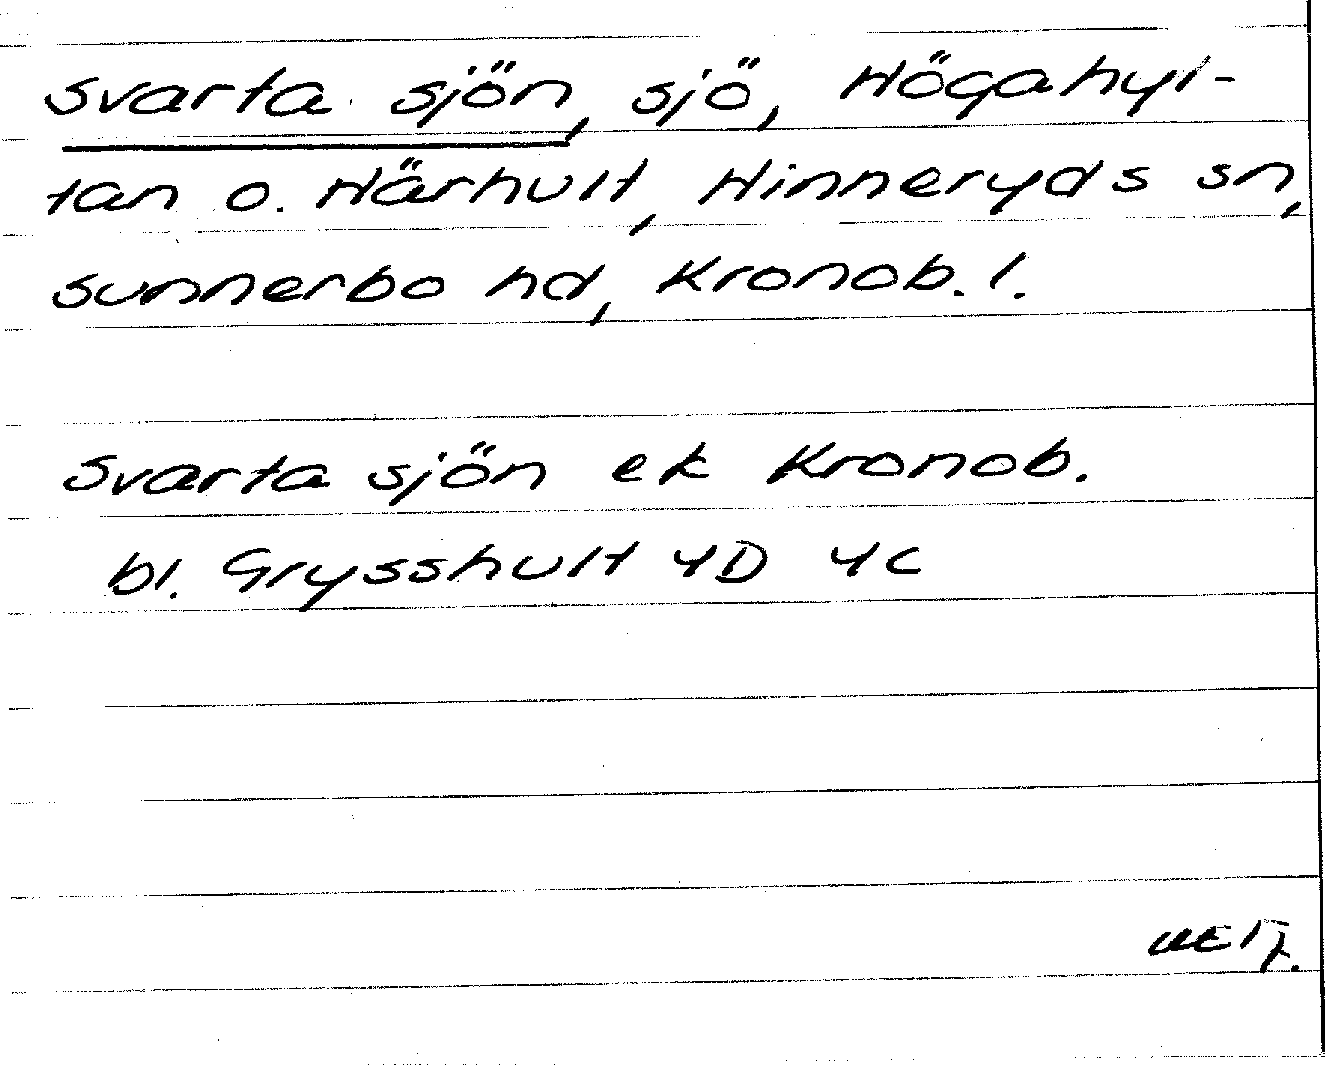 Svarta sjön, sjö, Högahyl-
tan o. Härhult, Hinneryds sn,
Sunnerbo hd, Kronob. l.
Svarta sjön ek Kronob.
bl. Grysshult 4D 4c